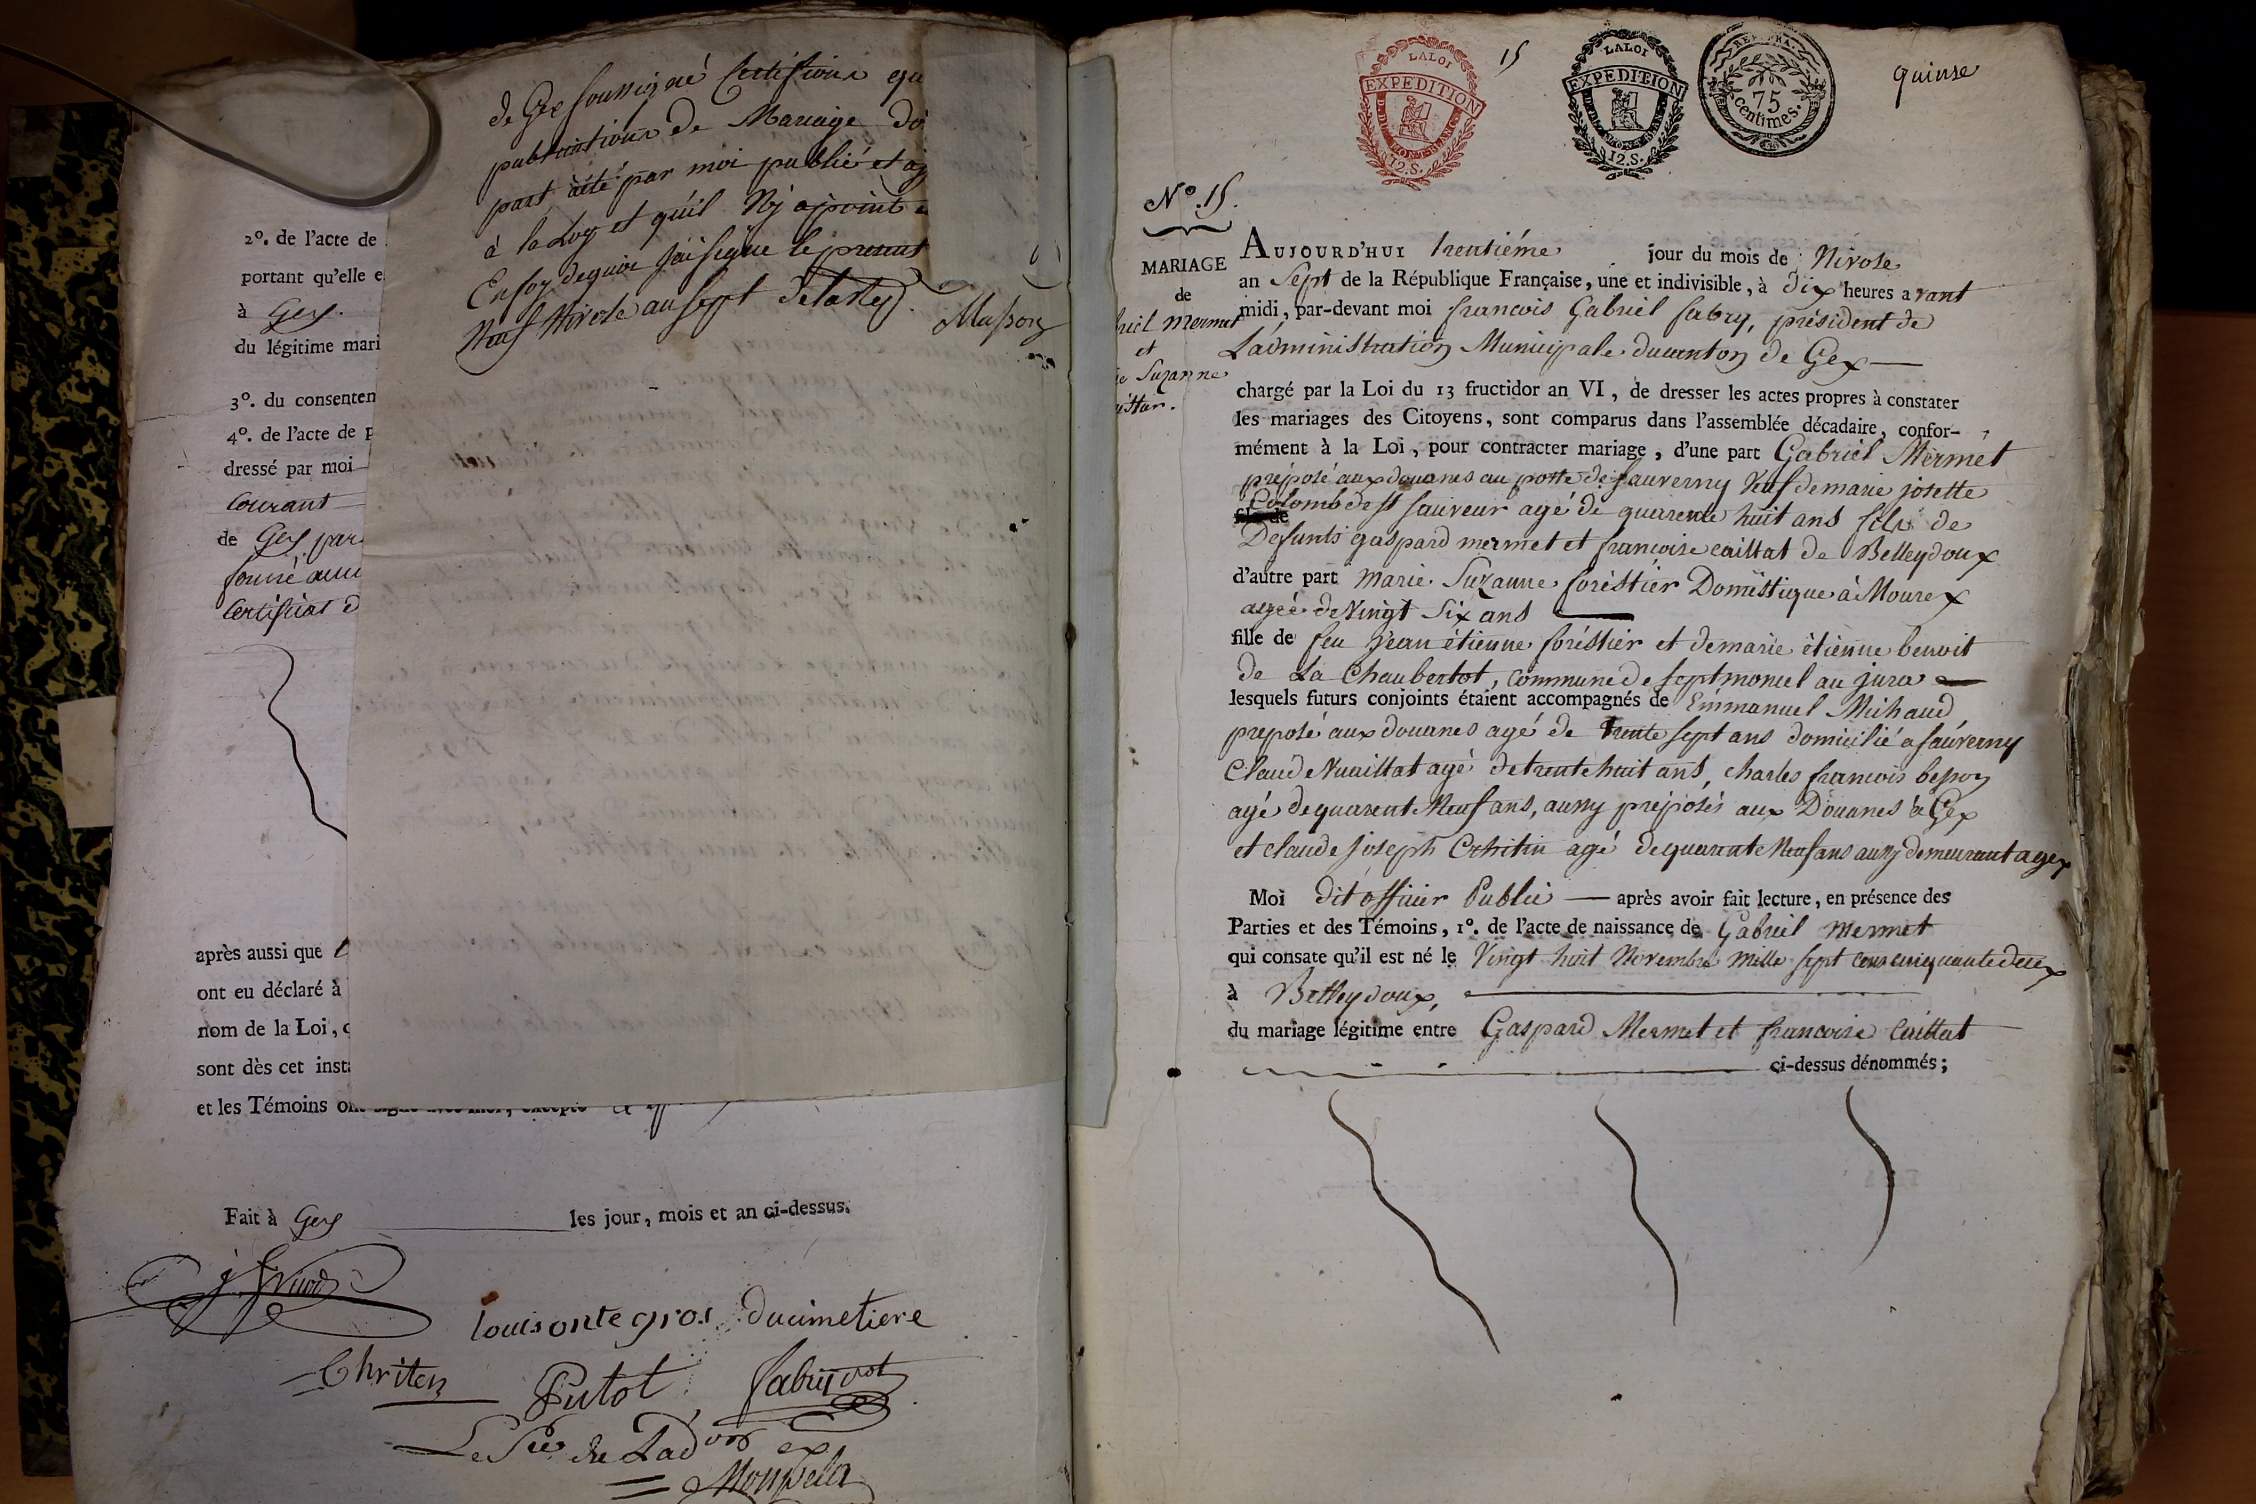 de Gex soussigné Certifions que
publications de Mariage
part àété par moi publié et
à la Loy et qu'il Ny apoint
En foy dequoi J'ai signé le present
Neuf Nivose an sept
Masson
2°. de l'acte de
portant qu'elle e
à Gex.
du légitime mari
3°. du consenten
4°. de l'acte de p
dressé par moi
courant
de Gex par
Certificat d
après aussi que
ont eu déclaré à
nom de la Loi, c
sont dès cet inst
et les Témoins
Fait à Gex les jour, mois et an ci-dessus.
louis onte gros ducimetiere
Chriten Putot fabry
15 quinse
LA LOI
EXPEDITION
12.S.
LA LOI
EXPEDITION
12.S.
REP. FRA.
75
centimes.
N°. 15.
MARIAGE
de
riel Mermet
et
ie Suzanne
éstier.
AUJOURD'HUI trentiéme jour du mois de Nivose
an Sept de la République Française, une et indivisible, à dix heures avant
midi, par-devant moi francois Gabriel fabry, président de
Ladministration Municipale ducanton de Gex
chargé par la Loi du 13 fructidor an VI, de dresser les actes propres à constater
les mariages des Citoyens, sont comparus dans l'assemblée décadaire, confor-
mément à la Loi, pour contracter mariage, d'une part Gabriel Mermet
préposé aux douanes au poste de sauverny Veuf de marie josette
Colomb de st sauveur agé de quarente huit ans fils de
Defunts gaspard mermet et francoise caillat de Belleydoux
d'autre part marie Suzanne foréstier Doméstique à Mourex
agéé de Vingt Six ans
fille de feu jean étienne foréstier et de marie étienne benoit
de La Chaubertot, commune de septmoncel au jura
lesquels futurs conjoints étaient accompagnés de Emmanuel Michaud,
preposé aux douanes agé de trente sept ans domicilié a sauverny
Claude Vuaillat agé de trente huit ans, charles francois besson
agé de quarent Neuf ans, aussy préposés aux Douanes à Gex
et claude Joseph Crhitin agé de quarante Neuf ans aussy demeurant a gex
Moi dit officier Public après avoir fait lecture, en présence des
Parties et des Témoins, 1°. de l'acte de naissance de Gabriel Mermet
qui consate qu'il est né le Vingt huit Novembre mille sept cens cinquante deux
à Belleydoux,
du mariage légitime entre Gaspard Mermet et francoise Caillat
ci-dessus dénommés;